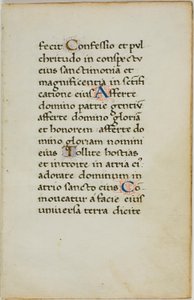 fecit Confessio et pul
chritudo in conspectu
eius sanctimonia et
magnificentia in scifi
catione eius Afferte
domino patrie gentiū
afferte domino gloriā
et honorem afferte do
mino gloriam nomini
eius Tollite hostias
et introite in atria ei
adorate dominum in
atrio sancto eius Co
moveatur a facie eius
universa terra dicite